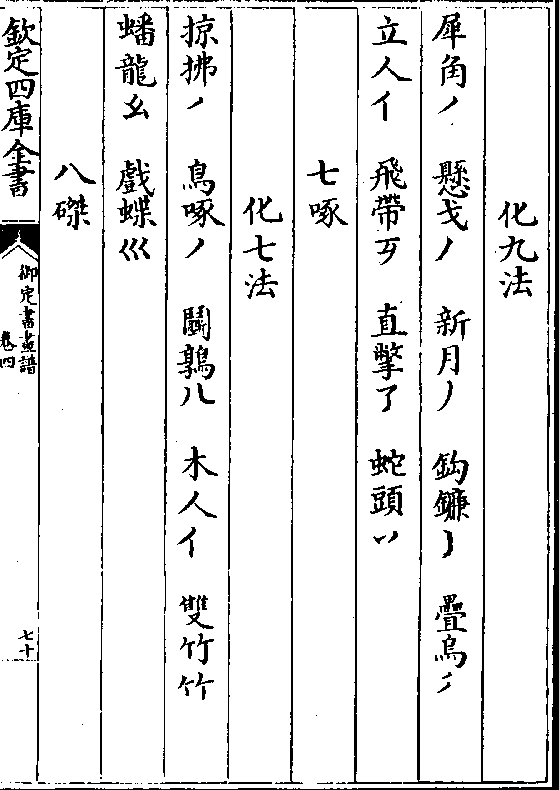 化九法
犀角丿 懸戈丿 新月丿 鈎鐮亅 疊烏
立人亻 飛帶 直撆了 蛇頭
七啄
化七法
掠拂丿 鳥啄丿 鬬鶉八 木人亻 雙竹竹
蟠龍幺 戲蝶巛
八磔
欽定四庫全書
御定書畫譜
卷四
七十